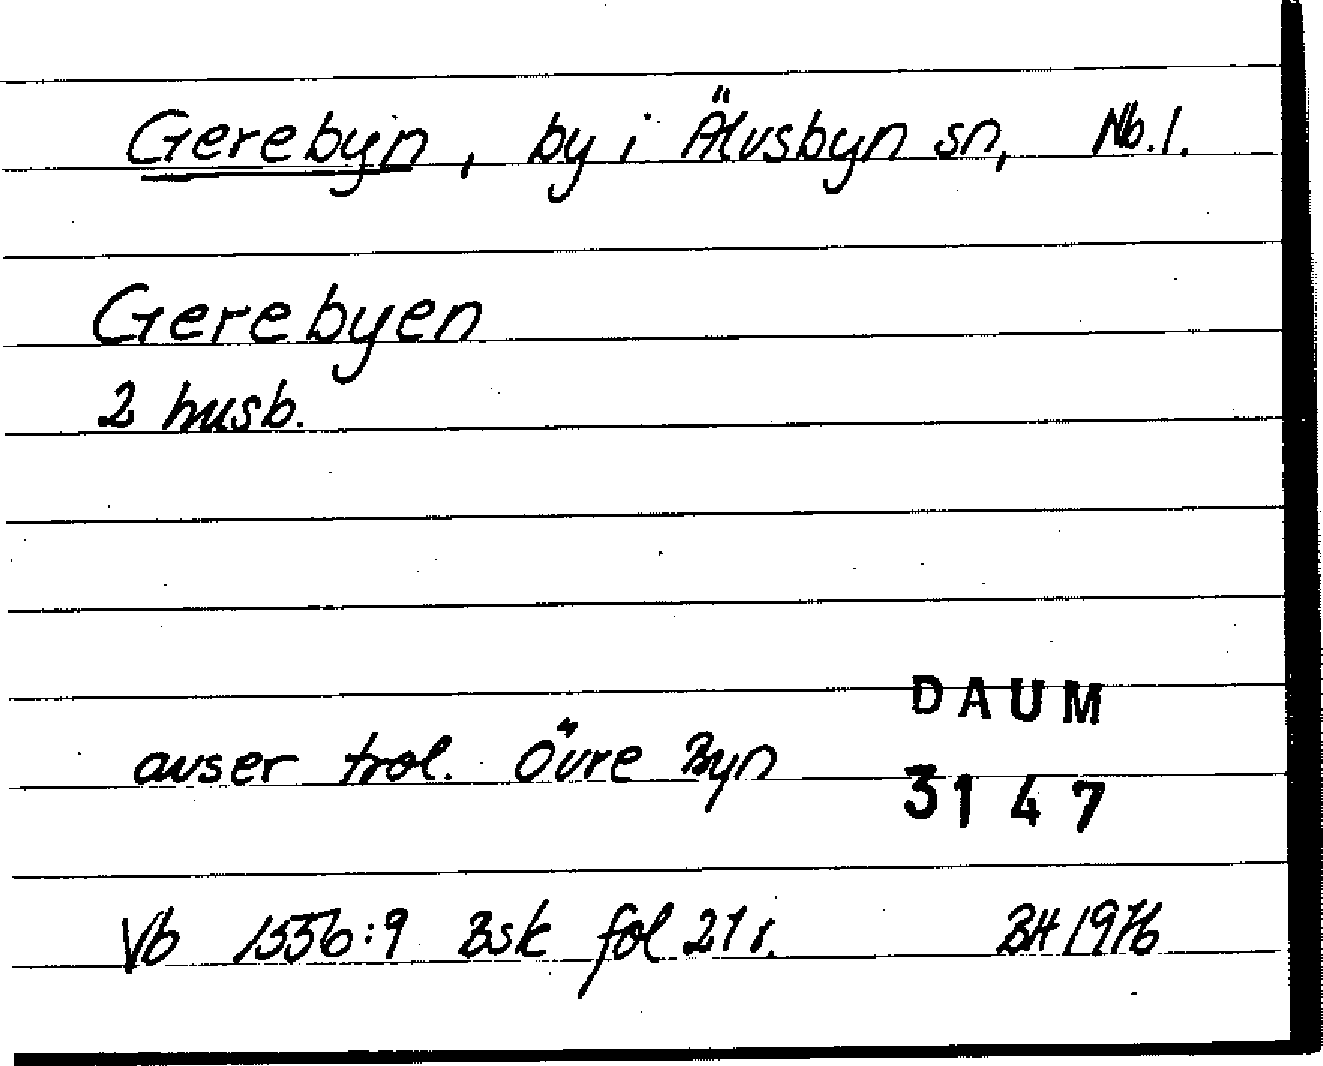 Gerebyn, by i Älvsbyn sn, Nb.l.
Gerebyen
2 husb.
DAUM
avser trol. Övre Byn
3147
Vb 1556:9 Bsk fol 21 r. BH 1976